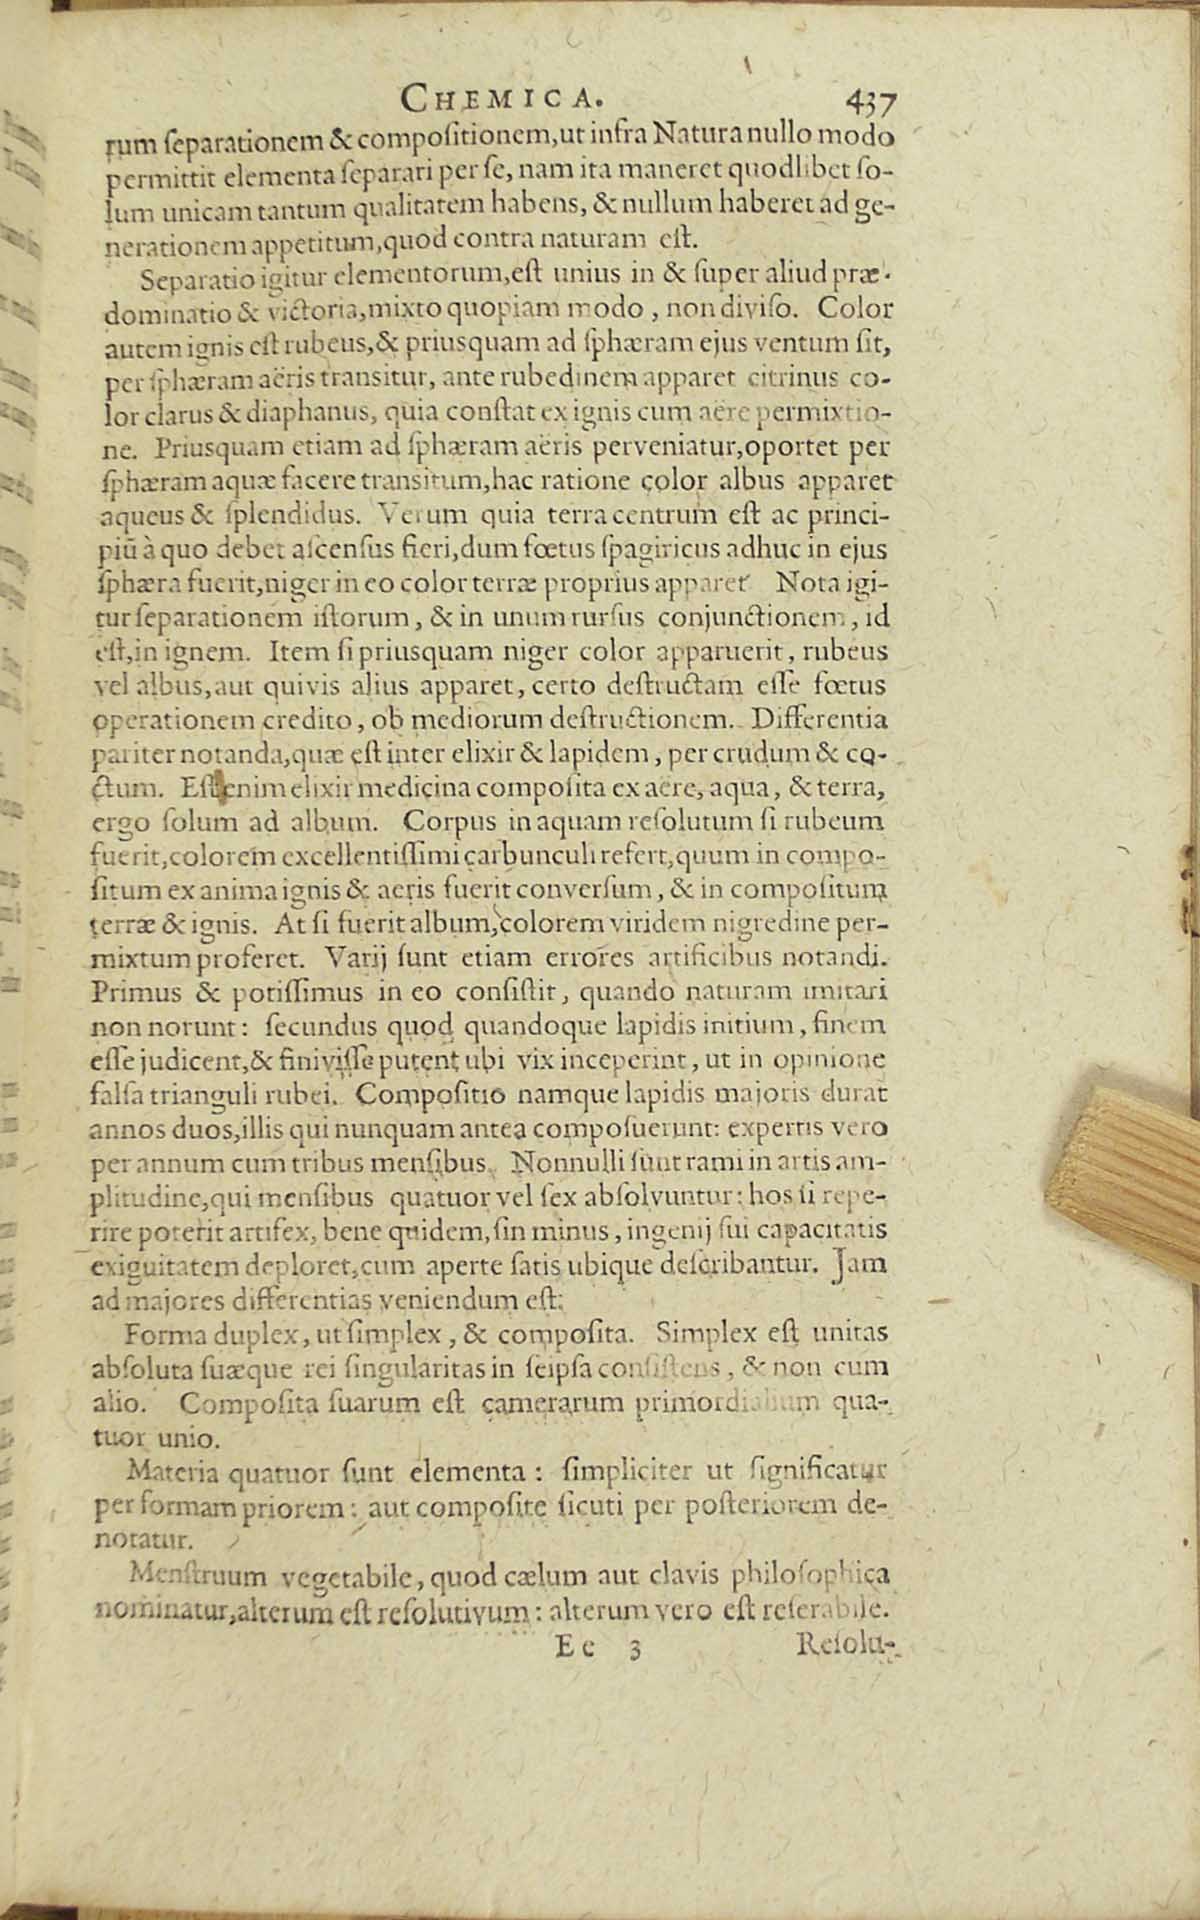 CHEMICA. 437
rum ſeparationem & compoſitionem, ut infra Natura nullo modo
permittit elementa ſeparari per ſe, nam ita maneret quodlibet ſo-
lum unicam tantum qualitatem habens, & nullum haberet ad ge-
nerationem appetitum, quod contra naturam eſt.
Separatio igitur elementorum, eſt unius in & ſuper aliud præ-
dominatio & victoria, mixto quopiam modo, non diviſo. Color
autem ignis eſt rubeus, & priusquam ad ſphæram ejus ventum ſit,
per ſphæram aëris transitur, ante rubedinem apparet citrinus co-
lor clarus & diaphanus, quia conſtat ex ignis cum aëre permixtio-
ne. Priusquam etiam ad ſphæram aëris perveniatur, oportet per
ſphæram aquæ facere transitum, hac ratione color albus apparet
aqueus & ſplendidus. Verum quia terra centrum eſt ac princi-
piū à quo debet aſcenſus fieri, dum fœtus ſpagiricus adhuc in ejus
ſphæra fuerit, niger in eo color terræ proprius apparet Nota igi-
tur ſeparationem iſtorum, & in unum rurſus conjunctionem, id
eſt, in ignem. Item ſi priusquam niger color apparuerit, rubeus
vel albus, aut quivis alius apparet, certo deſtructam eſſe fœtus
operationem credito, ob mediorum deſtructionem. Differentia
pariter notanda, quæ eſt inter elixir & lapidem, per crudum & co-
ctum. Eſt enim elixir medicina compoſita ex aere, aqua, & terra,
ergo ſolum ad album. Corpus in aquam reſolutum ſi rubeum
fuerit, colorem excellentiſſimi carbunculi refert, quum in compo-
ſitum ex anima ignis & aeris fuerit converſum, & in compoſitum
terræ & ignis. At ſi fuerit album, colorem viridem nigredine per-
mixtum proferet. Varij ſunt etiam errores artificibus notandi.
Primus & potiſſimus in eo conſiſtit, quando naturam imitari
non norunt: ſecundus quod quandoque lapidis initium, finem
eſſe judicent, & finiviſſe putent ubi vix inceperint, ut in opinione
falſa trianguli rubei. Compoſitio namque lapidis majoris durat
annos duos, illis qui nunquam antea compoſuerunt: expertis vero
per annum cum tribus menſibus. Nonnulli ſunt rami in artis am-
plitudine, qui menſibus quatuor vel ſex abſolvuntur: hos ſi repe-
rire poterit artifex, bene quidem, ſin minus, ingenij ſui capacitatis
exiguitatem deploret, cum aperte ſatis ubique deſcribantur. Jam
ad majores differentias veniendum eſt.
Forma duplex, ut ſimplex, & compoſita. Simplex eſt unitas
abſoluta ſuæque rei ſingularitas in ſeipſa conſiſtens, & non cum
alio. Compoſita ſuarum eſt camerarum primordialium qua-
tuor unio.
Materia quatuor ſunt elementa: ſimpliciter ut ſignificatur
per formam priorem: aut compoſite ſicuti per poſteriorem de-
notatur.
Menſtruum vegetabile, quod cælum aut clavis philoſophica
nominatur, alterum eſt reſolutivum: alterum vero eſt reſerabile.
Ee 3 Reſolu-